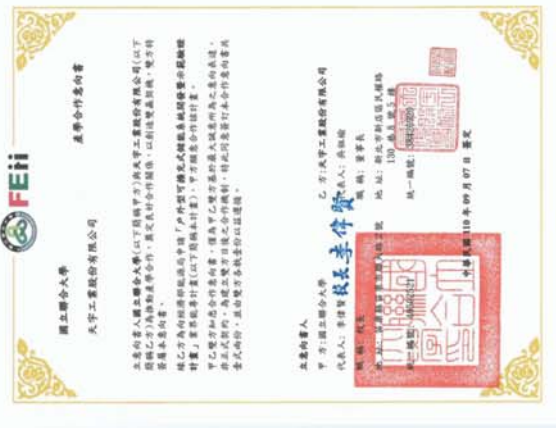 FEii
國立聯合大學
天宇工業股份有限公司
產學合作意向書
立意向書人國立聯合大學(以下簡稱甲方)與天宇工業股份有限公司(以下
簡稱乙方)為推動產學合作,奠定良好合作關係,以創造雙贏契機,雙方特
簽屬本意向書。
緣乙方為向經濟部能源局申請「戶外型可擴充式儲能系統開發暨示範驗證
計畫」業界能專計畫(以下簡稱本計畫),甲方願意合作該計畫。
甲乙雙方知悉合作意向書,僅為甲乙雙方基於最大誠意所為之意向表達,
非正式契約,為建立雙方日後之合作機制,特此同意簽訂本合作意向書共
壹式兩份,並由雙方各執壹份以茲遵循。
立意向書人
甲 方:國立聯合大學
代表人:李偉賢
校長李偉賢
職 稱:校長
地 址:
統一編號:
乙 方:天宇工業股份有限公司
代表人:
職 稱:董事長
地 址:新北市新店區民權路
130 巷 號 5 樓
統一編號:
中華民國 110 年 09 月 07 日 簽定